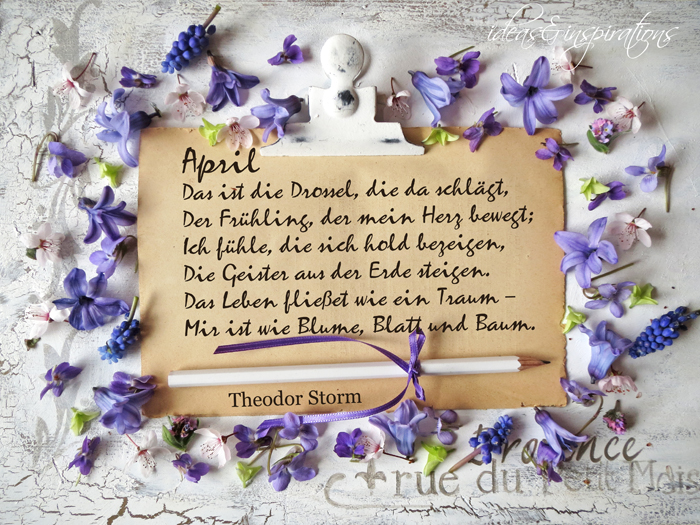 ideas&inspirations
April
Das ist die Drossel, die da schlägt,
Der Frühling, der mein Herz bewegt;
Ich fühle, die sich hold bezeigen,
Die Geister aus der Erde steigen.
Das Leben fließet wie ein Traum –
Mir ist wie Blume, Blatt und Baum.
Theodor Storm
rue du Petit Mois